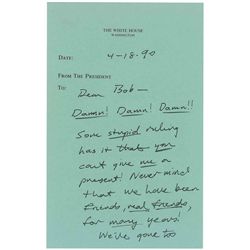 THE WHITE HOUSE
WASHINGTON
DATE: 4-18-90
FROM THE PRESIDENT
TO: Dear Bob—
Damn! Damn! Damn!!
Some stupid ruling
has it that you
can't give me a
present! Never mind
that we have been
friends, real friends,
for many years!
We've gone to